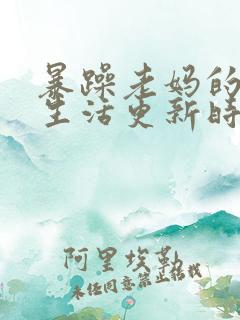 暴躁老妈的
生活更新时
阿里埃勒
未经同意禁止转载